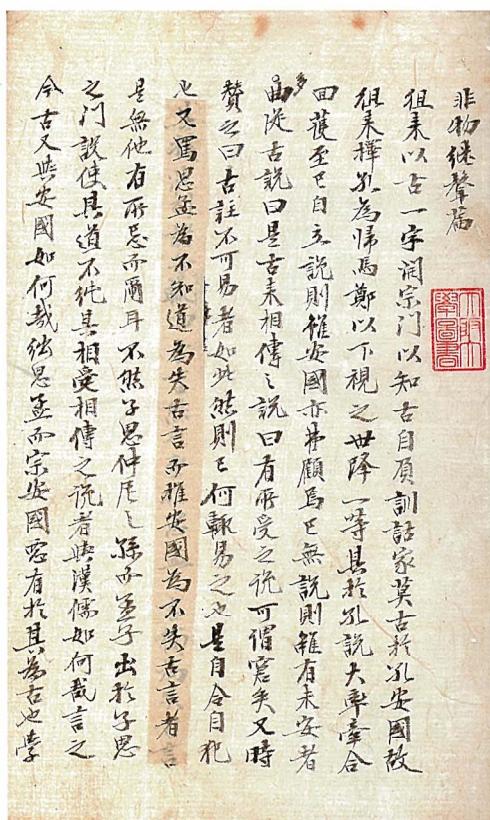 非物継聲篇
徂耒以古一字闢宗門以知古自負訓詁家莫古於孔安國故
徂耒擇孔為歸馬鄭以下視之世降一等其於孔說大率牽合
回護至已自立說則雖安國亦弗顧焉已無說則雖有未安者
多曲從古說曰是古耒相傳之說曰有所受之說可謂窘矣又時
贊之曰古註不可易者如此然則已何輒易之也是自合自犯
也又罵思孟為不知道為失古言而推安國為不失古言者言
是無他有所忌而爾耳不然子思仲尼之孫而孟子出於子思
之門說使其道不純其相受相傳之說者與漢儒如何哉言之
今古又與安國如何哉絀思孟而宗安國惡有於其為古也學
大阪大學圖書